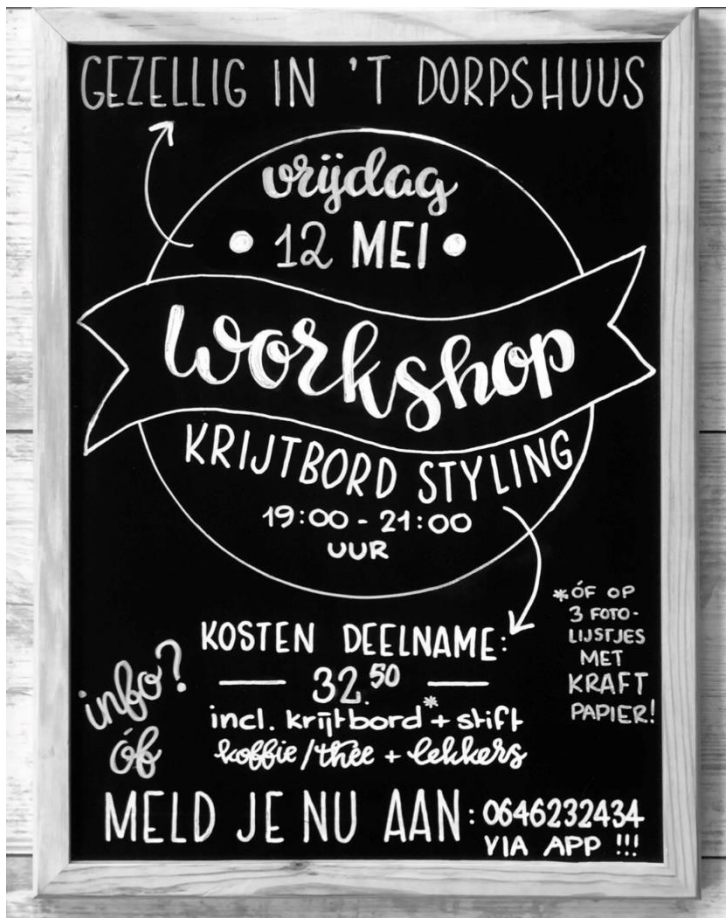 GEZELLIG IN 'T DORPSHUUS
vrijdag
• 12 MEI •
workshop
KRIJTBORD STYLING
19:00 - 21:00
UUR
KOSTEN DEELNAME:
— 32.50 —
incl. krijtbord* + stift
koffie/thee + lekkers
*ÓF OP
3 FOTO-
LIJSTJES
MET
KRAFT
PAPIER!
info?
óf
MELD JE NU AAN: 0646232434
VIA APP !!!